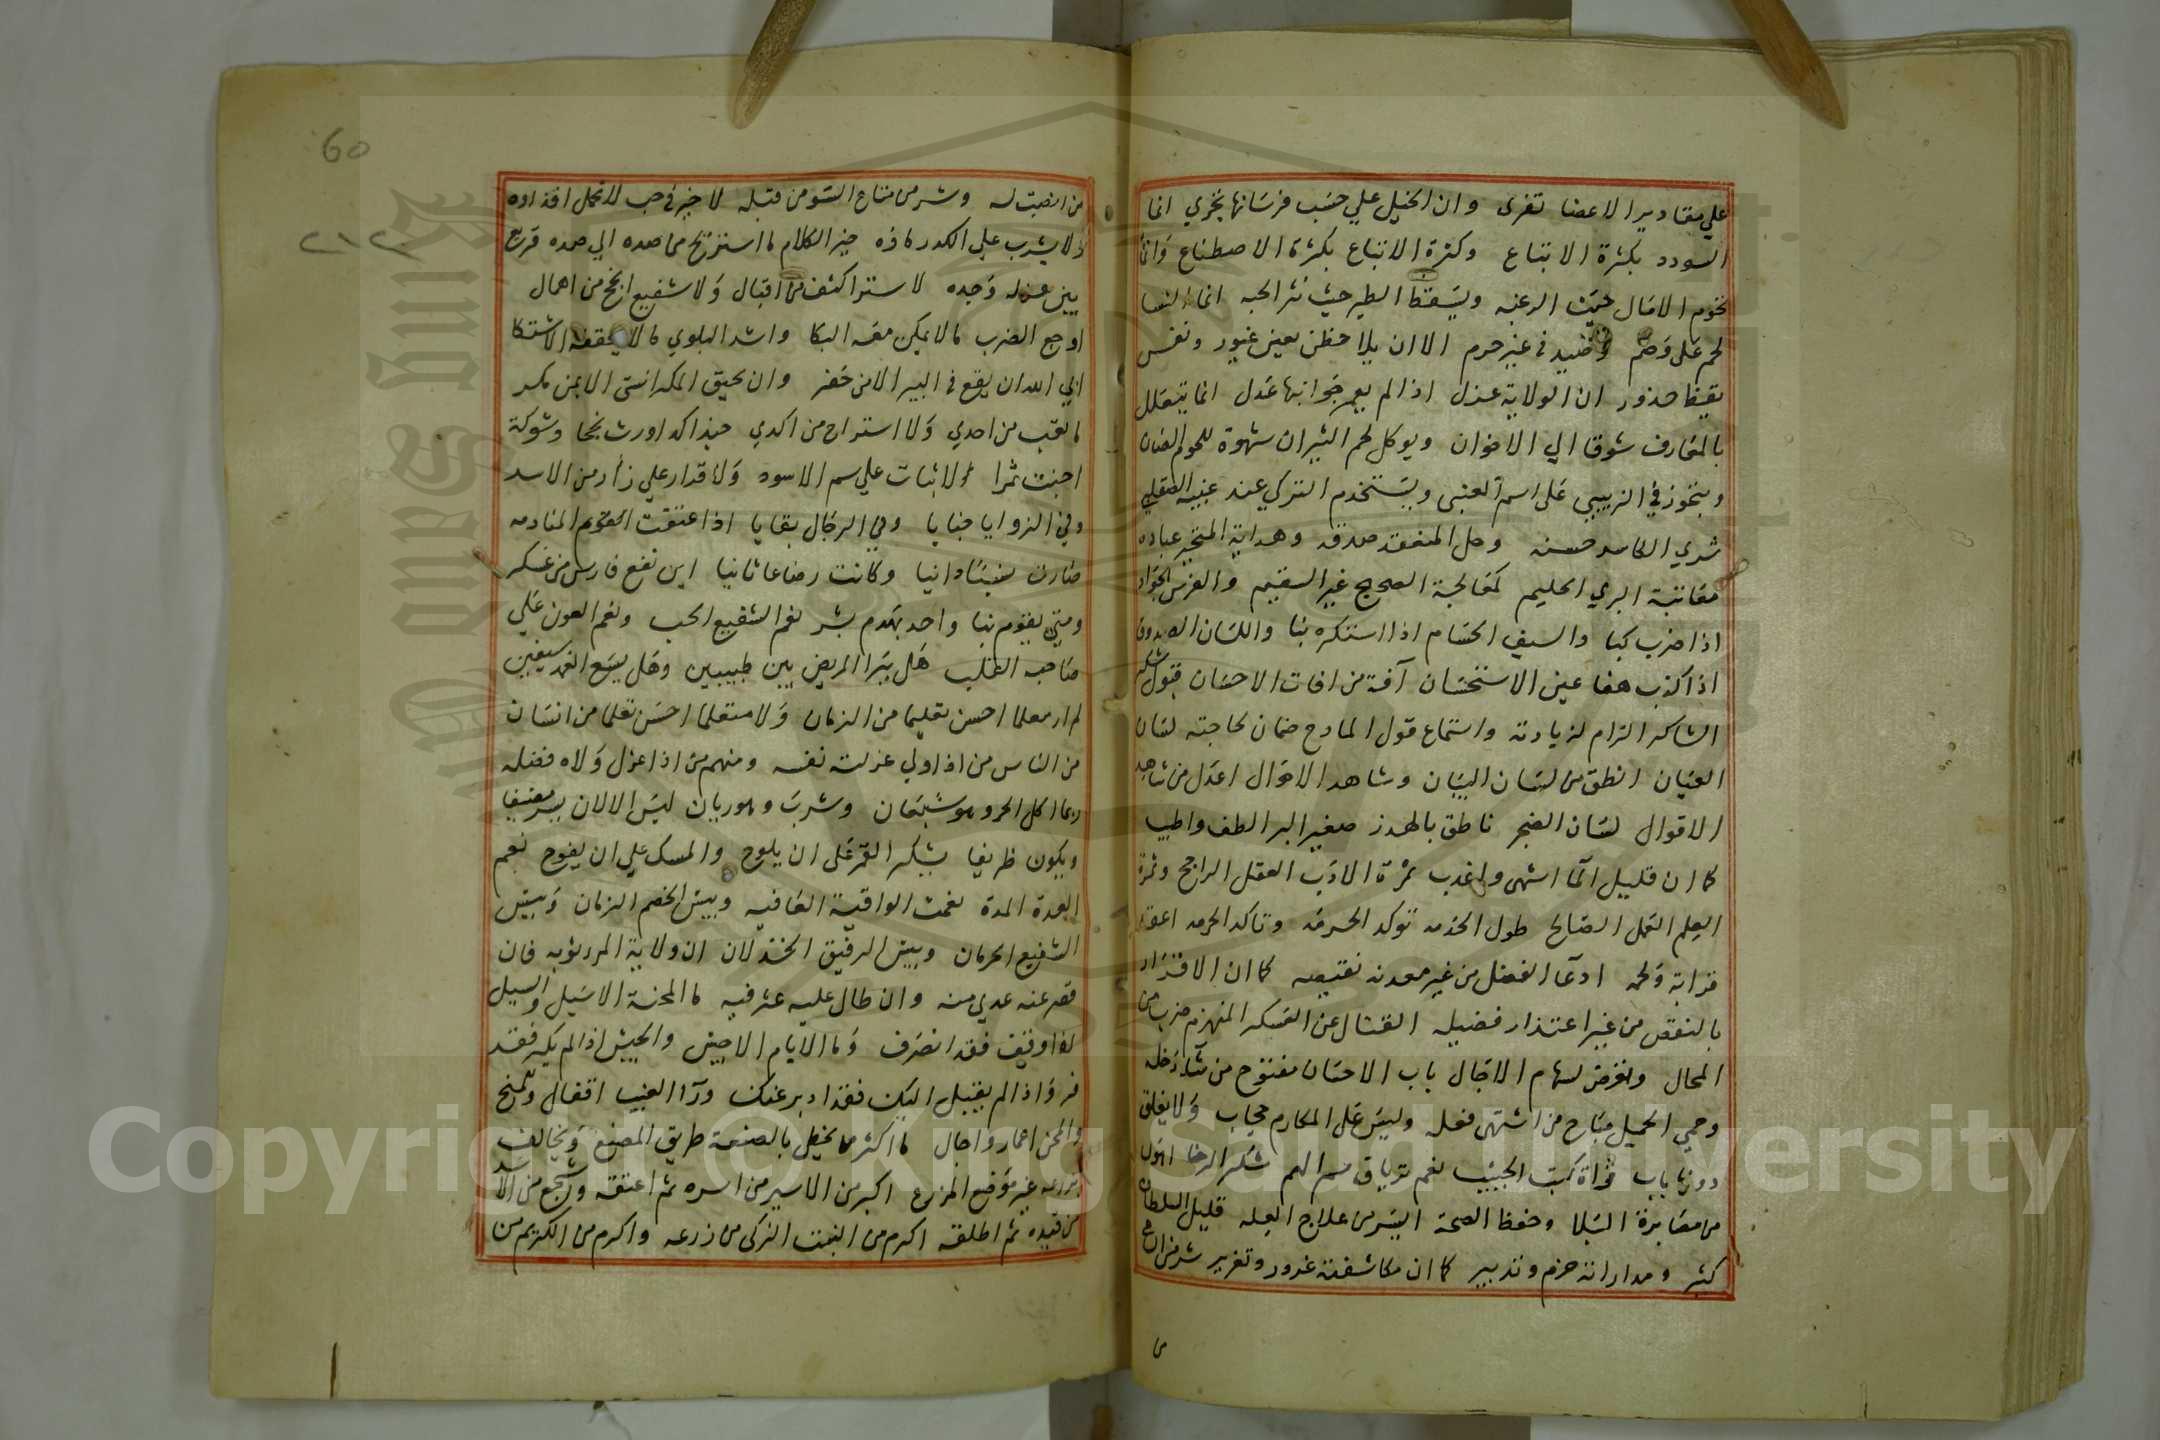 علي مقادير الاعضا تفرى وان الخيل علي حسب فرسانها تجري انما
السودد بكثرة الاتباع وكثرة الاتباع بكثرة الاصطناع وانما
تحوم الامال حيث الرغبه ويسقط الطير حيث نثر الحبه انما النسا
لحم على وضم وصيد في غير حرم الا ان يلاحظن بعين غيور ونفس
يقيظا حذور ان الولاية عزل اذا لم يعمر جوانبها عدل انما يتعلل
بالمعارف شوقا الي الاخوان ويوكل لحم الثيران شهوة للحوم الضان
ويتجوز في الزبيبي على اسم العنبى ويستخدم التركي عند غيبة الصقلبي
شري الكاسد حسنه وحل المنعقد صدقه وهداية المتحير عباده
معاتبة البري الحليم كمعالجة الصحيح غير السقيم والفرس الجواد
اذا ضرب كبا والسيف الحسام اذا استكره نبا واللسان الصدوق
اذا كذب هفا عين الاستحسان آفة من افات الاحسان قبول شكر
الشاكر التزام لزيادته واستماع قول المادح ضمان لحاجته لسان
العيان انطق من لسان البيان وشاهد الاحوال اعدل من شاهد
الاقوال لسان الضجر ناطق بالهذر صغير البر الطف واطيب
كما ان قليل المآ اشهى واعذب ثمرة الادب العقل الراجح وثمرة
العلم العمل الصالح طول الخدمه توكد الحرمه وتاكد الحرمه اعقد
قرابة ولحمه ادعآ الفضل من غير معدنه نقيصه كما ان الاقرار
بالنقص من غير اعتذار فضيله القتال عن العسكر المنهزم ضرب من
المحال وتعرض لسهام الاجال باب الاحسان مفتوح من شآ دخله
وحمي الجميل مباح من اشتهى فعله وليس على المكارم حجاب ولا يغلق
دونها باب قراة كتب الحبيب نعم ترياق سم الهم شكر الرخا اهون
من مصابرة البلا وحفظ الصحة ايسر من علاج العله قليل السلطان
كثير ومداراته حزم وتدبير كما ان مكاشفته غرور وتغرير شر من
من
60
٢١٢
من انضيت له وشر من متاع السو من قبله لا خير في حب لا تحمل اقذاوه
ولا يشرب علي الكدر ماوه خير الكلام ما استريح من ضده الي ضده
بين هزله وجده لا ستر اكثف من اقبال ولا شفيع انجح من اهمال
اوجع الضرب ما لا يمكن معه البكا واشد البلوي ما لا يخففه الاشتكا
ابي الله ان يقع في البير الا من حفر وان يحيق المكر السيّ الا بمن مكر
ما تعب من اجدي ولا استراح من اكدي حبذا كد اورث نجحا وشوكة
اجنت ثمرا لا ثبات علي سم الاسود ولا قرار علي زأر من الاسد
وفي الزوايا خبايا وفي الرجال بقايا اذا عتقت المنادمه
صارت نسبا دانيا وكانت رضاعا ثانيا اين نفع فارس من عسكر
ومتي يقوم بنا واحد بهدم بشر نعم الشفيع الحب ونعم العون علي
صاحبه القلب هل يبرا المريض بين طبيبين وهل يسع الغمد سيفين
لم ار معلما احسن تعليما من الزمان ولا متعلما احسن تعلما من انسان
من الناس من اذا ولي عزلته نفسه ومنهم من اذا عزل ولاه فضله
ربما اكل الحر وهو شبعان وشرب وهو ريان ليس الا لان يسر مضيفا
ويكون ظريفا يشكر القمر على ان يلوح والمسك علي ان يفوح نعم
العدة المدة نعمت الواقية العافيه وبيس الخصم الزمان وبيس
الشفيع الحرمان وبيس الرفيق الخذلان ان ولاية المرء ثوبه فان
قصر عنه عري منه وان طال عليه عثر فيه ما المحنة الا سيل والسيل
اذا وقف فقد انصرف وما الايام الا جيش والجيش اذا لم يكر فقد
فر واذا لم يقبل اليك فقد ادبر عنك ورآ الغيب اقفال وللمنح
والمحن اعمار واجال ما اكثر من يخطي بالصنعة طريق المصنع ويخالف
بزرعه غير موضع المزرع اكبر من الاسير من اسره ثم اعتقه واشجع من الاسد
من قيده ثم اطلقه اكرم من النبت الزكى من زرعه واكرم من الكريم من